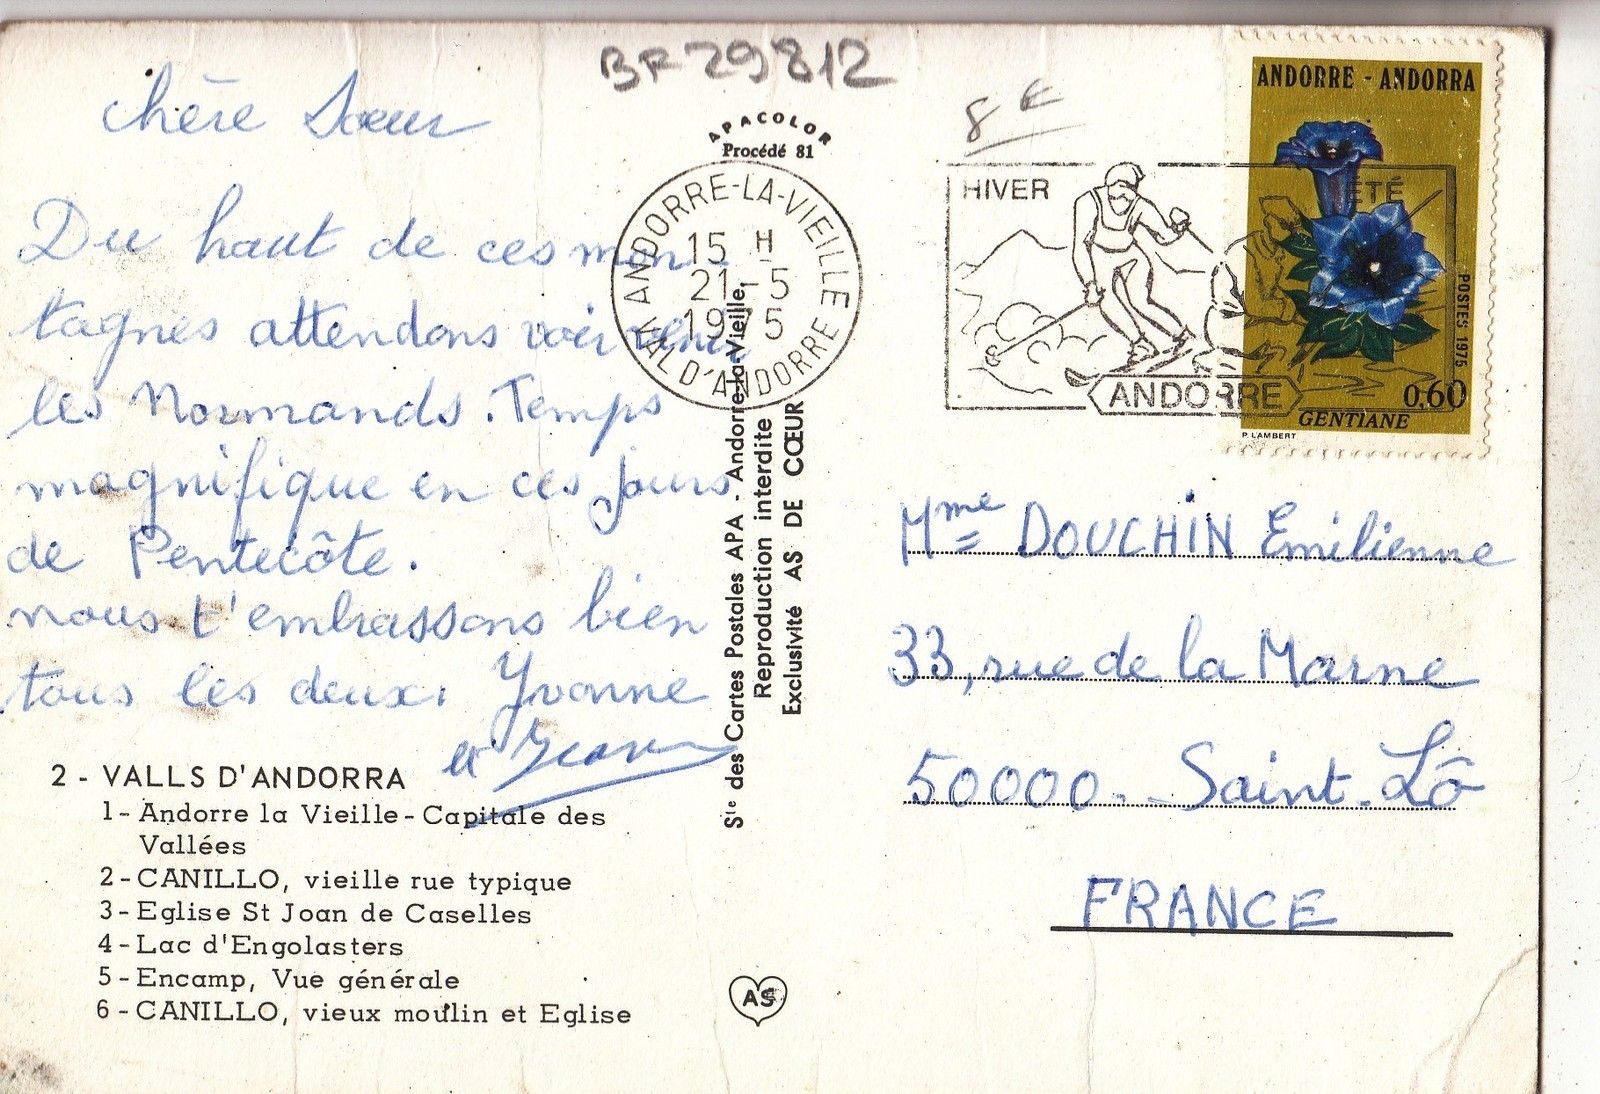 BF29812
8€
chère Sœur
Du haut de ces mon-
tagnes attendons voir venir
les Normands. Temps
magnifique en ces jours
de Pentecôte.
nous t'embrassons bien
tous les deux. Yvonne
et Jean
2 - VALLS D'ANDORRA
1 - Andorre la Vieille - Capitale des
Vallées
2 - CANILLO, vieille rue typique
3 - Eglise St Joan de Caselles
4 - Lac d'Engolasters
5 - Encamp, Vue générale
6 - CANILLO, vieux moulin et Eglise
APACOLOR
Procédé 81
ANDORRE-LA-VIEILLE
15 H
21-5
1975
VAL D'ANDORRE
Ste des Cartes Postales APA - Andorre-la-Vieille
Reproduction interdite
Exclusivité AS DE CŒUR
AS
HIVER
ÉTÉ
ANDORRE
ANDORRE - ANDORRA
POSTES 1975
0,60
GENTIANE
P. LAMBERT
Mme DOUCHIN Emilienne
33, rue de la Marne
50000 - Saint-Lô
FRANCE